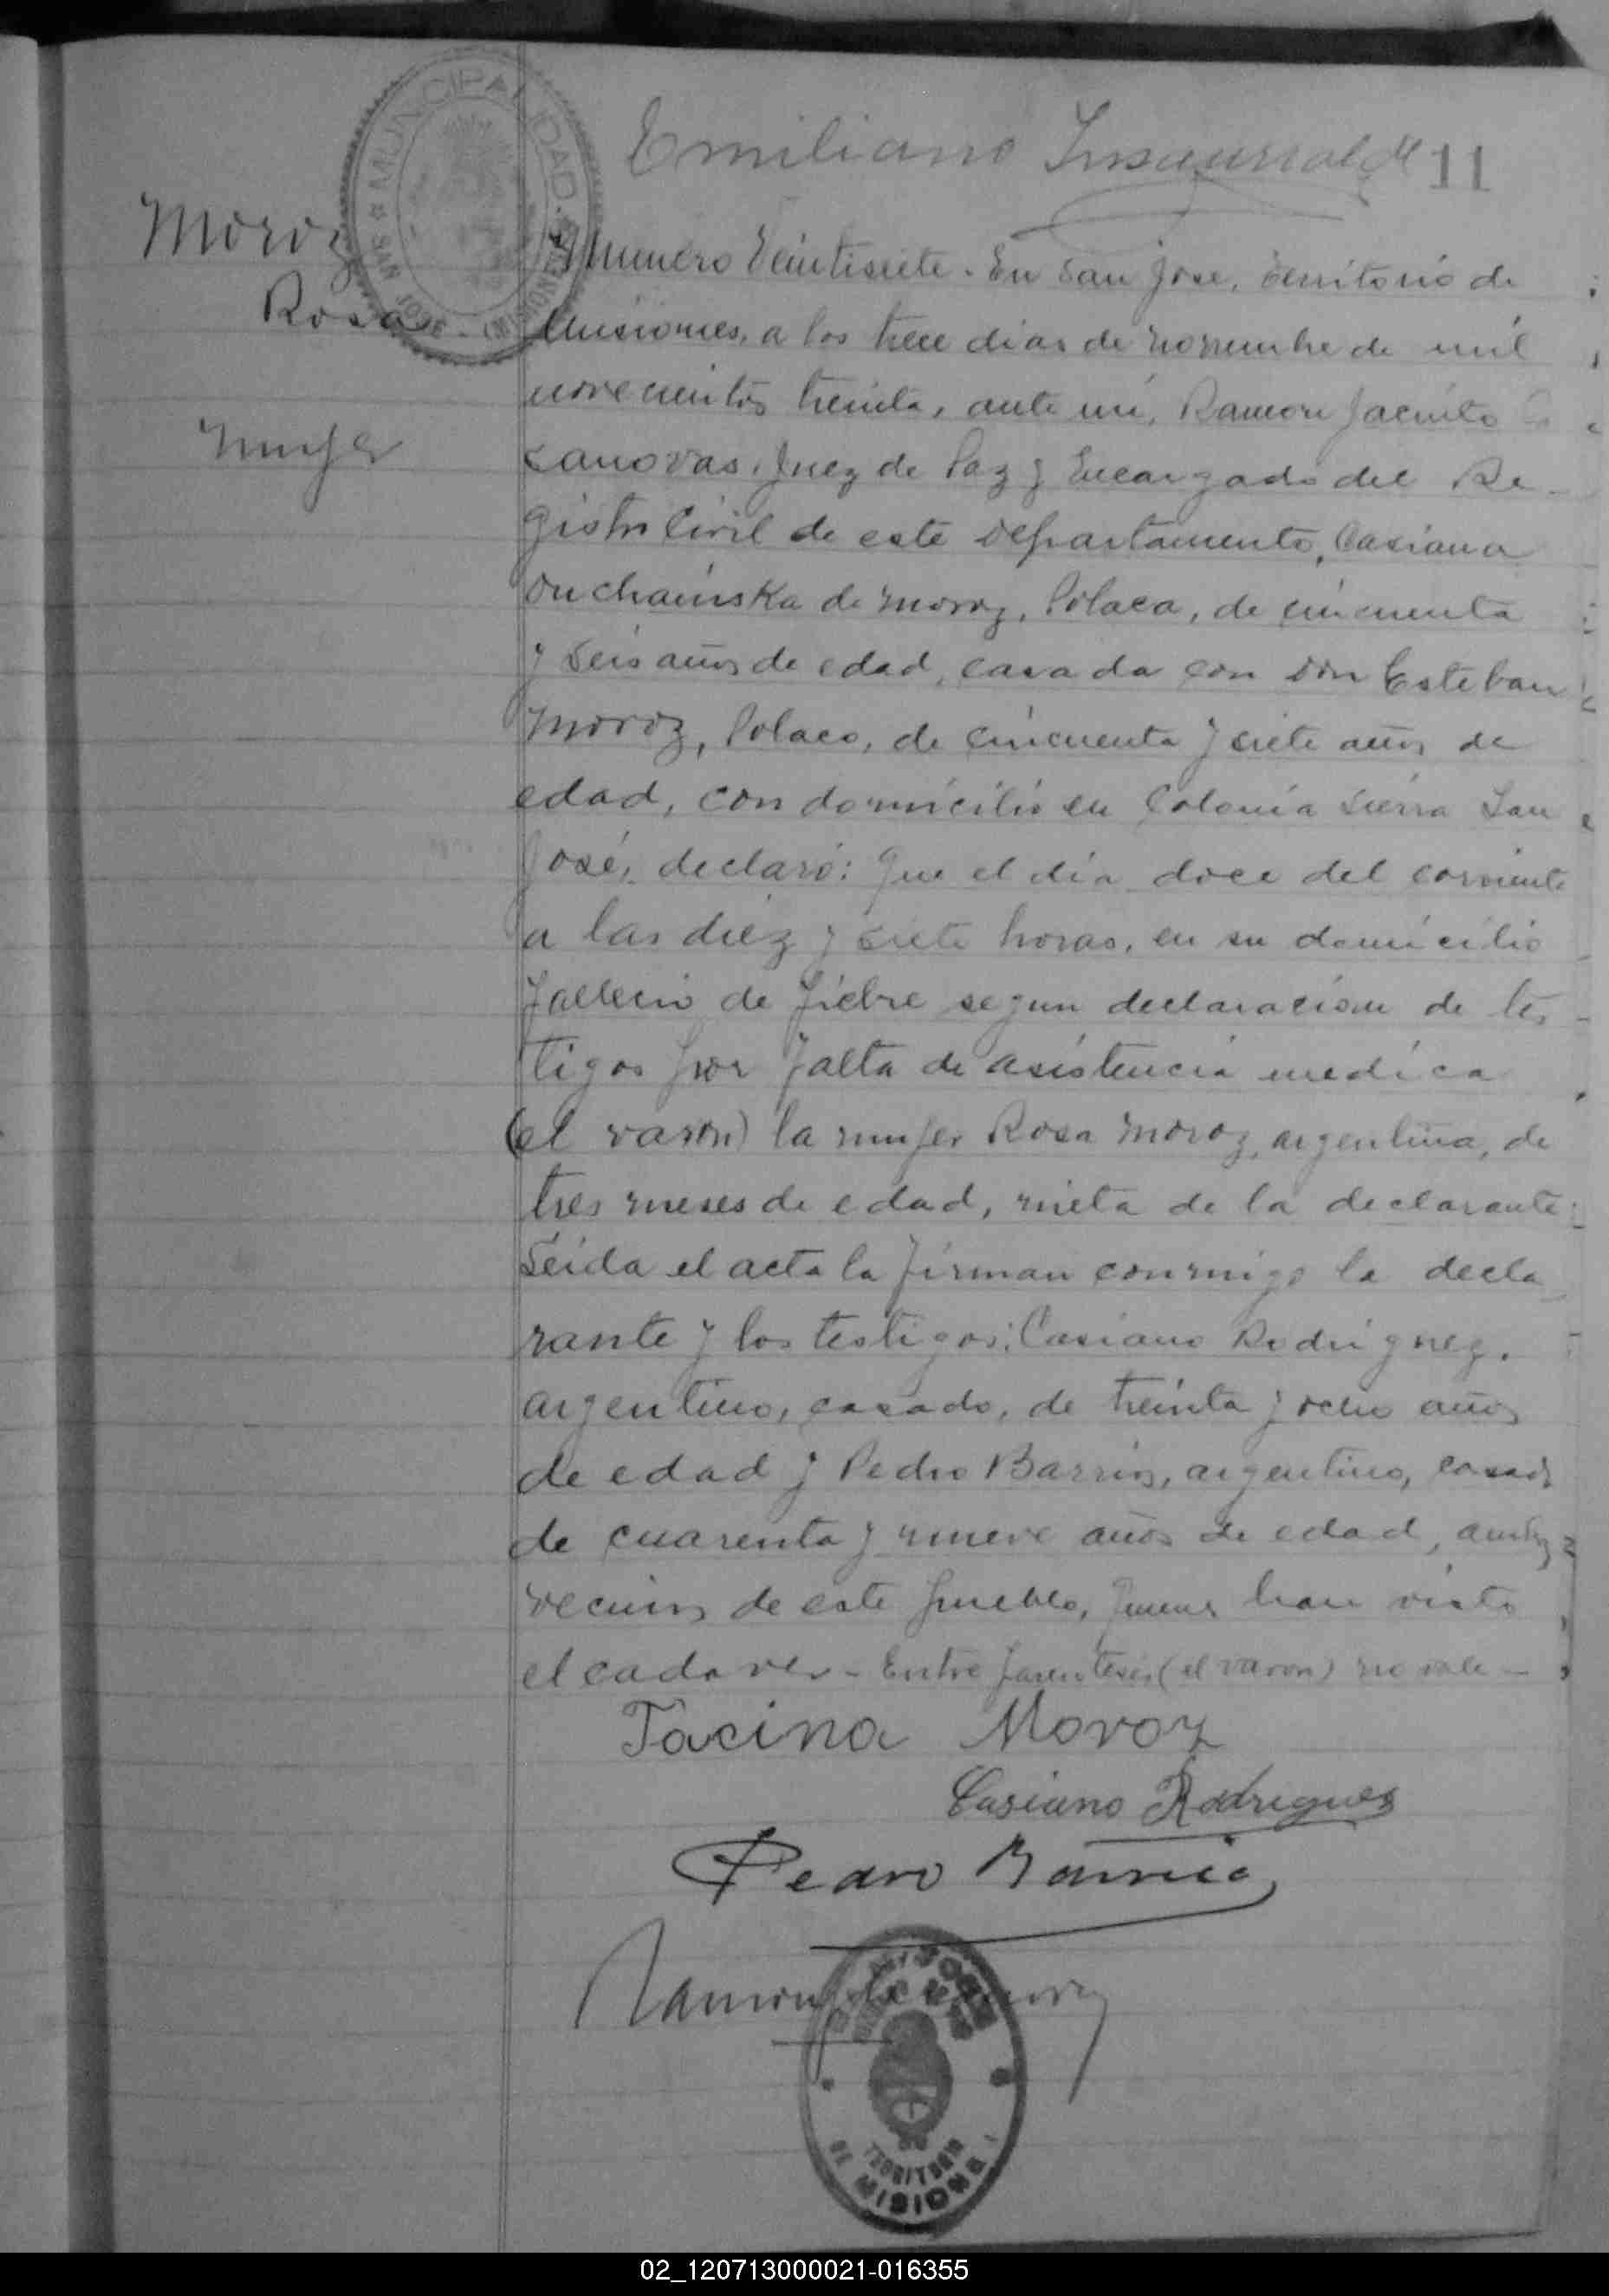 Emiliano Insaurralde 11
MUNICIPALIDAD
SAN JOSE - (MISIONES)
Moroz
Rosa
mujer
Número Veintisiete. En San José, territorio de
Misiones, a los trece dias de noviembre de mil
novecientos treinta, ante mi, Ramon Jacinto
Canovas, Juez de Paz y Encargado del Re-
gistro Civil de este Departamento, Casiana
de Moroz, Polaca, de cincuenta
y seis años de edad, casada con Don Esteban
Moroz, Polaco, de cincuenta y siete años de
edad, con domicilio en Colonia Sierra San
José, declaró: Que el día doce del corriente
a las diez y siete horas, en su domicilio
falleció de fiebre segun declaracion de tes-
tigos por falta de asistencia medica
(el varon) la mujer Rosa Moroz, argentina, de
tres meses de edad, nieta de la declarante
Leida el acta la firman conmigo la decla
rante y los testigos: Casiano Rodriguez,
argentino, casado, de treinta y ocho años
de edad y Pedro Barrios, argentino, casado
de cuarenta y nueve años de edad, ambos
vecinos de este pueblo, quienes han visto
el cadaver - Entre parentesis (el varon) no vale -
Tacina Moroz
Casiano Rodriguez
Pedro Barrios
Ramon
SAN JOSE
TERRITORIO
DE MISIONES
02_120713000021-016355